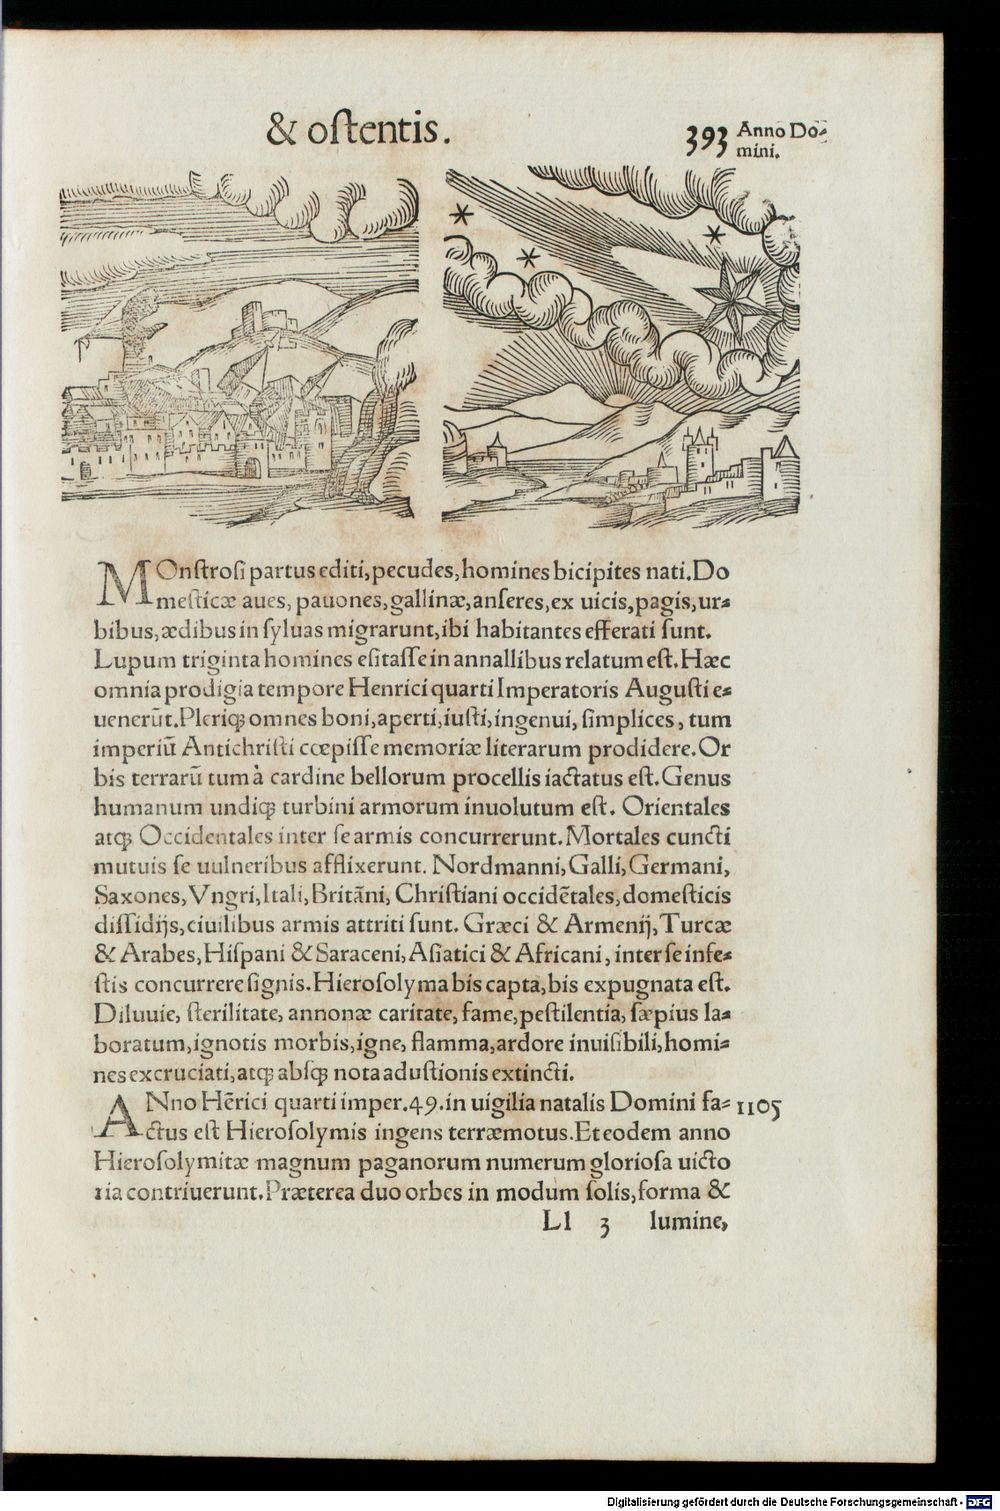 & oſtentis.
393 Anno Do-
mini.
MOnſtroſi partus editi, pecudes, homines bicipites nati. Do
meſticæ aues, pauones, gallinæ, anſeres, ex uicis, pagis, ur-
bibus, ædibus in ſyluas migrarunt, ibi habitantes efferati ſunt.
Lupum triginta homines eſitaſſe in annallibus relatum eſt. Hæc
omnia prodigia tempore Henrici quarti Imperatoris Auguſti e-
uenerũt. Pleriqꝫ omnes boni, aperti, iuſti, ingenui, ſimplices, tum
imperiũ Antichriſti cœpiſſe memoriæ literarum prodidere. Or
bis terrarũ tum à cardine bellorum procellis iactatus eſt. Genus
humanum undiqꝫ turbini armorum inuolutum eſt. Orientales
atqꝫ Occidentales inter ſe armis concurrerunt. Mortales cuncti
mutuis ſe uulneribus afflixerunt. Nordmanni, Galli, Germani,
Saxones, Vngri, Itali, Britãni, Chriſtiani occidẽtales, domeſticis
diſſidijs, ciuilibus armis attriti ſunt. Græci & Armenij, Turcæ
& Arabes, Hiſpani & Saraceni, Aſiatici & Africani, inter ſe infe-
ſtis concurrere ſignis. Hieroſolyma bis capta, bis expugnata eſt.
Diluuie, ſterilitate, annonæ caritate, fame, peſtilentia, ſæpius la-
boratum, ignotis morbis, igne, flamma, ardore inuiſibili, homi-
nes excruciati, atqꝫ abſqꝫ nota aduſtionis extincti.
ANno Hẽrici quarti imper. 49. in uigilia natalis Domini fa- 1105
ctus eſt Hieroſolymis ingens terræmotus. Et eodem anno
Hieroſolymitæ magnum paganorum numerum glorioſa uicto
ria contriuerunt. Præterea duo orbes in modum ſolis, forma &
Ll 3 lumine,
Digitalisierung gefördert durch die Deutsche Forschungsgemeinschaft - DFG